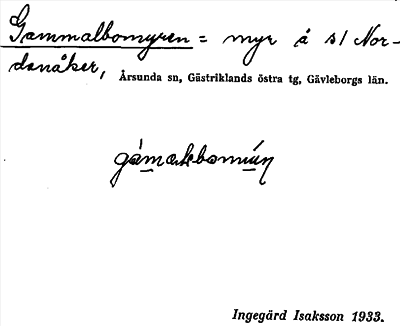 Gammalbomyren = myr å s/ Nor-
danåker, Årsunda sn, Gästriklands östra tg, Gävleborgs län.
Ingegärd Isaksson 1933.